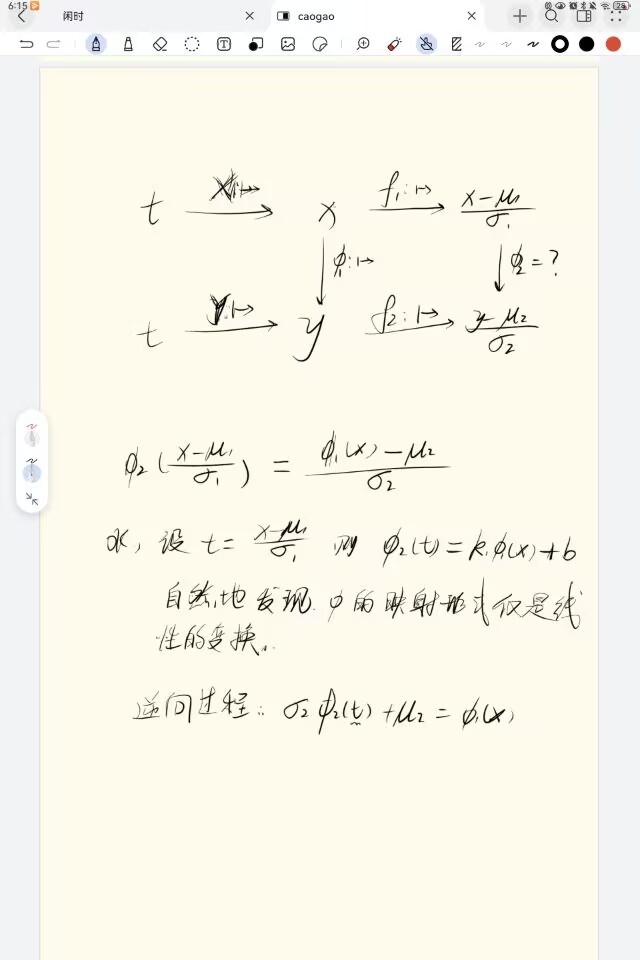 6:15
闲时
caogao
t x f₁:↦ x-μ₁/σ₁
φ₁:↦ φ₂=?
t y f₂:↦ y-μ₂/σ₂
φ₂(x-μ₁/σ₁) = φ₁(x)-μ₂/σ₂
设 t = x-μ₁/σ₁ 则 φ₂(t) = k·φ₁(x)+b
自然地发现 φ的映射形式仅是线
性的变换.
逆向过程: σ₂φ₂(t)+μ₂ = φ₁(x)